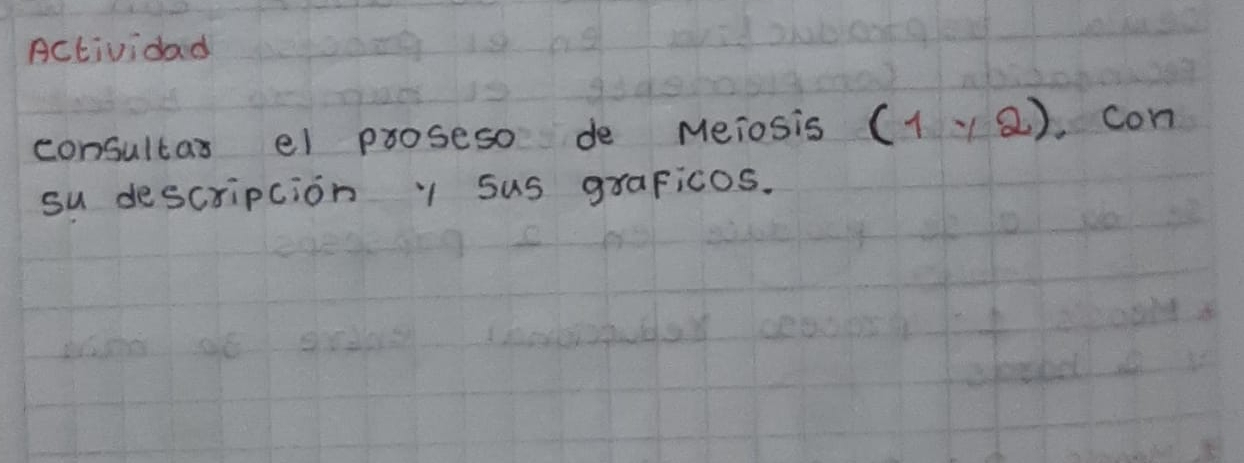 Actividad
consultar el proseso de Meiosis (1 y 2). con
su descripción y sus graficos.